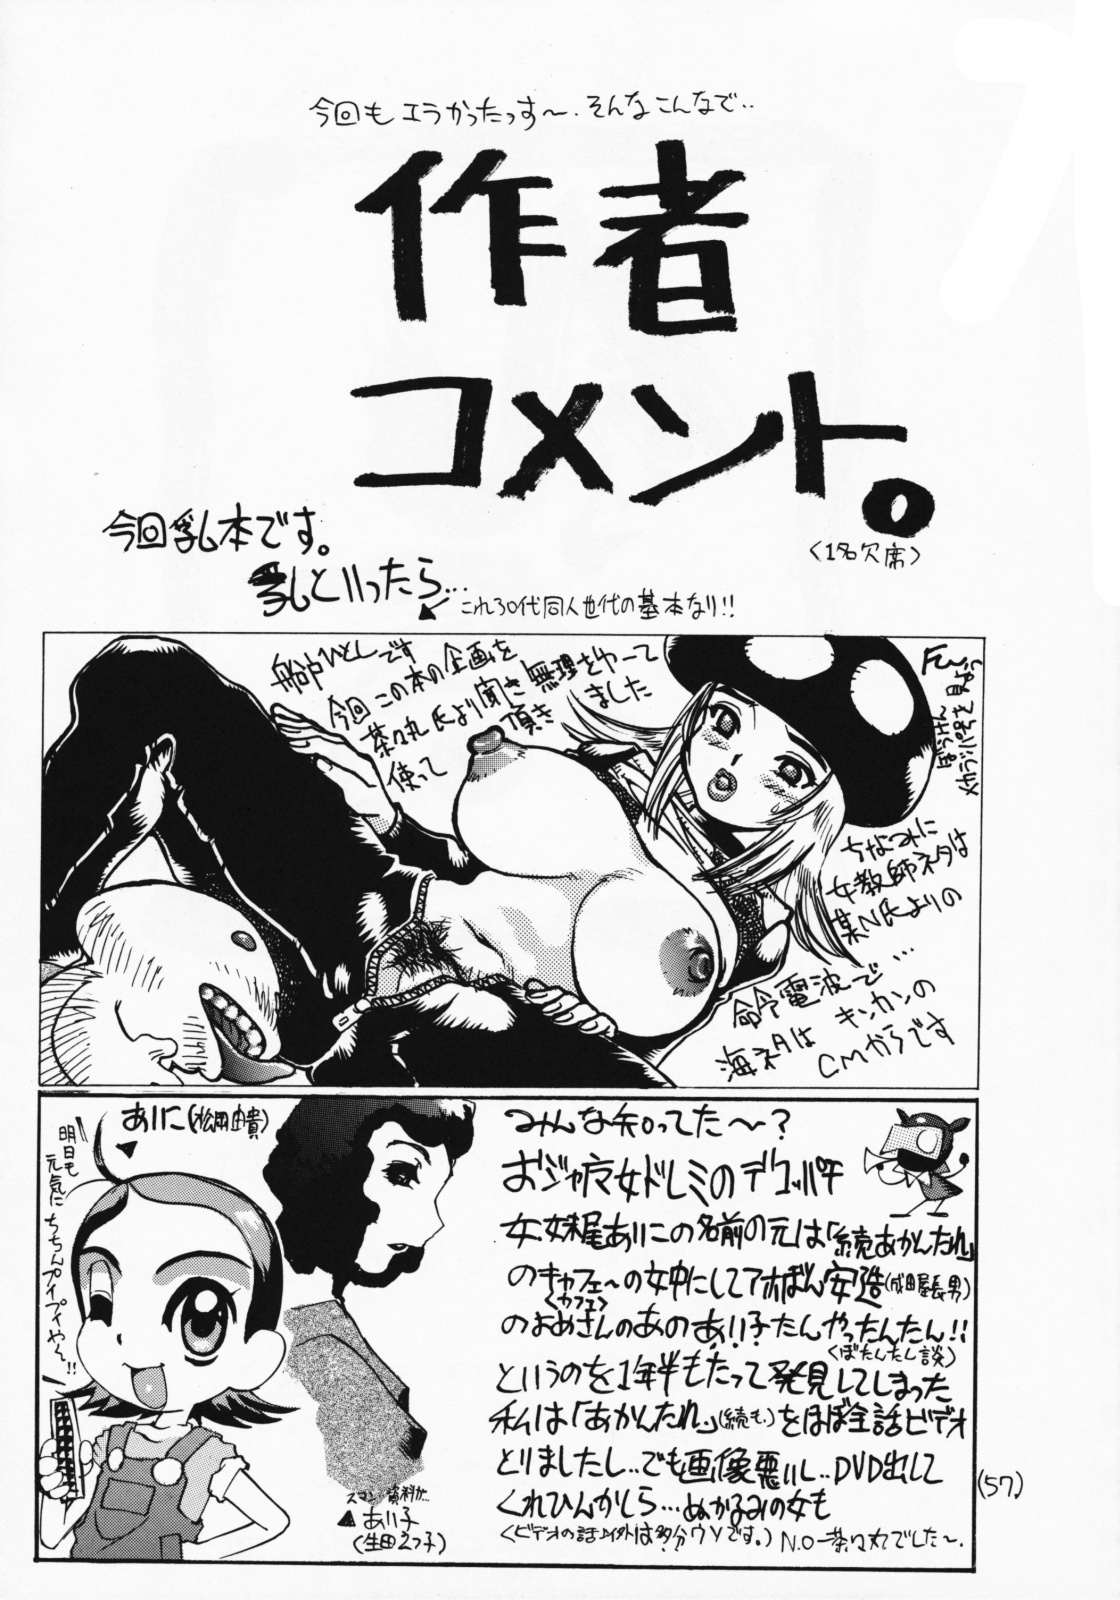 今回も エラかったっす〜.そんなこんなで..
作者
コメント。
〈1名欠席〉
今回乳本です。
乳といったら...
これ30代同人世代の基本なり!!
船堀ひとしです
今回 この本の企画を
茶々丸氏より聞き
無理をやーって
頂き
ました
使って
ちなみに
女教師ネタは
某N氏よりの
命令電波で...
海ネタは キンカンの
CMからです
ありこ(松岡由貴)
明日も
元気に
ちちんプイプイやぞ!!
みんな知ってた〜?
おジャ魔女ドレミのデコッパチ
女、妹尾ありこの名前の元は「続あかんたれ」
のキャフェ〜の女中にしてアホぼん安造(成田屋長男)
〈カフェ〉
のおめさんのあの あい子たんやったんたん!!
〈ぼたんたん談〉
というのを1年半もたって発見してしまった
私は「あかんたれ」(続も)をほぼ全話ビデオ
とりましたし..でも画像悪いし..DVD出して
くれひんかしら...ぬかるみの女も
〈ビデオの話以外は多分ウソです。〉N.O-茶々丸でした〜.
スマン資料が...
あい子
(生田えつ子)
(57)